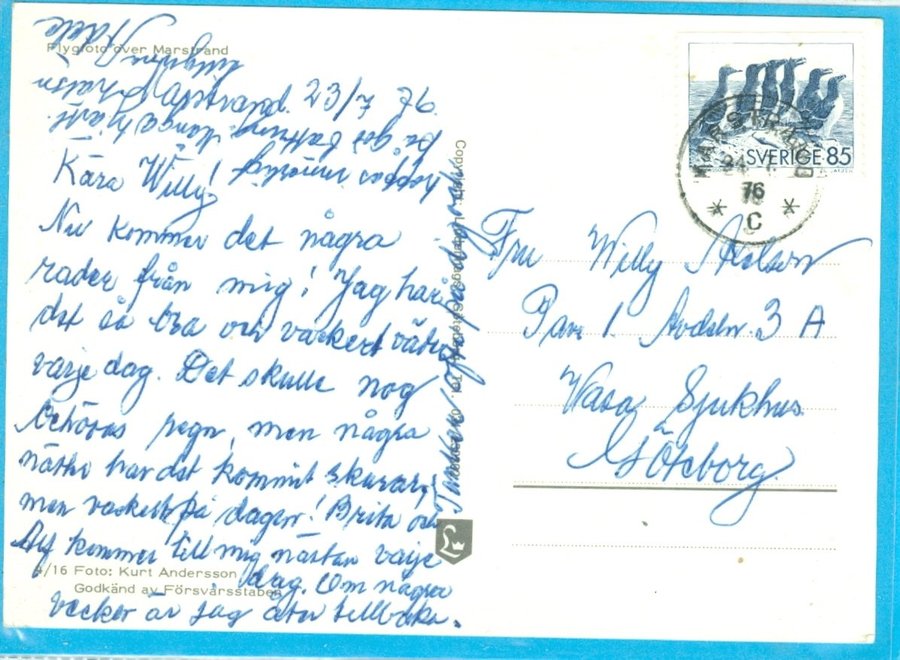 Flygfoto över Marstrand
Marstrand. 23/7 76.
Kära Willy!
Nu kommer det några
rader från mig! Jag har
det så bra och vackert väder
varje dag. Det skulle nog
behövas regn, men några
nätter har det kommit skurar,
men vackert på dagen! Brita och
kommer till mig nästan varje
dag. Om några
veckor är jag åter tillbaka.
Tänker ofta på dig
hoppas innerligt
på god bättring.
Adèle
4/16 Foto: Kurt Andersson
Godkänd av Försvarsstaben
SVERIGE 85
MARSTRAND
24
76
* C *
Fru Willy Axelson
Pav 1. Avdeln. 3 A
Vasa Sjukhus
Göteborg.